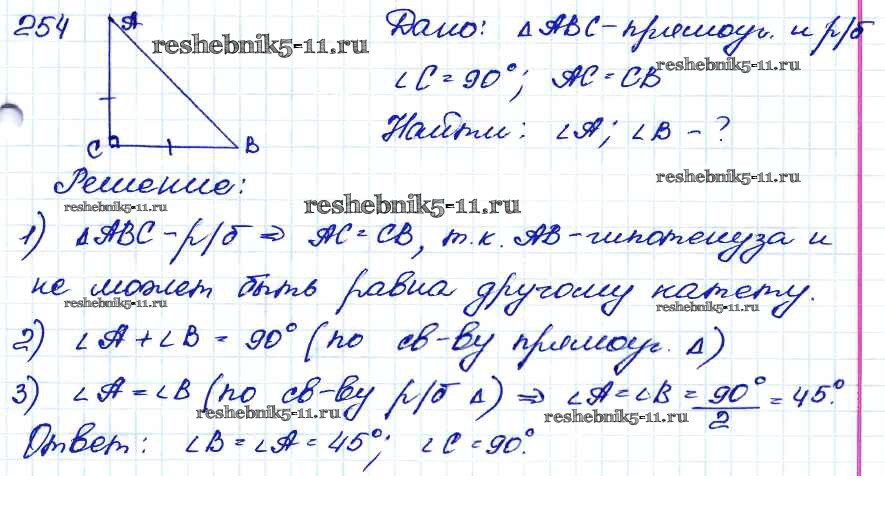 254 A Дано: △ABC - прямоуг. и р/б
reshebnik5-11.ru
reshebnik5-11.ru
∠C = 90°; AC = CB
C B Найти: ∠A; ∠B - ?
reshebnik5-11.ru
Решение:
reshebnik5-11.ru reshebnik5-11.ru
1) △ABC - р/б ⇒ AC = CB, т.к. AB - гипотенуза и
не может быть равна другому катету.
reshebnik5-11.ru reshebnik5-11.ru
2) ∠A + ∠B = 90° (по св-ву прямоуг. △)
3) ∠A = ∠B (по св-ву р/б △) ⇒ ∠A = ∠B = 90°/2 = 45°.
reshebnik5-11.ru reshebnik5-11.ru
Ответ: ∠B = ∠A = 45°; ∠C = 90°.